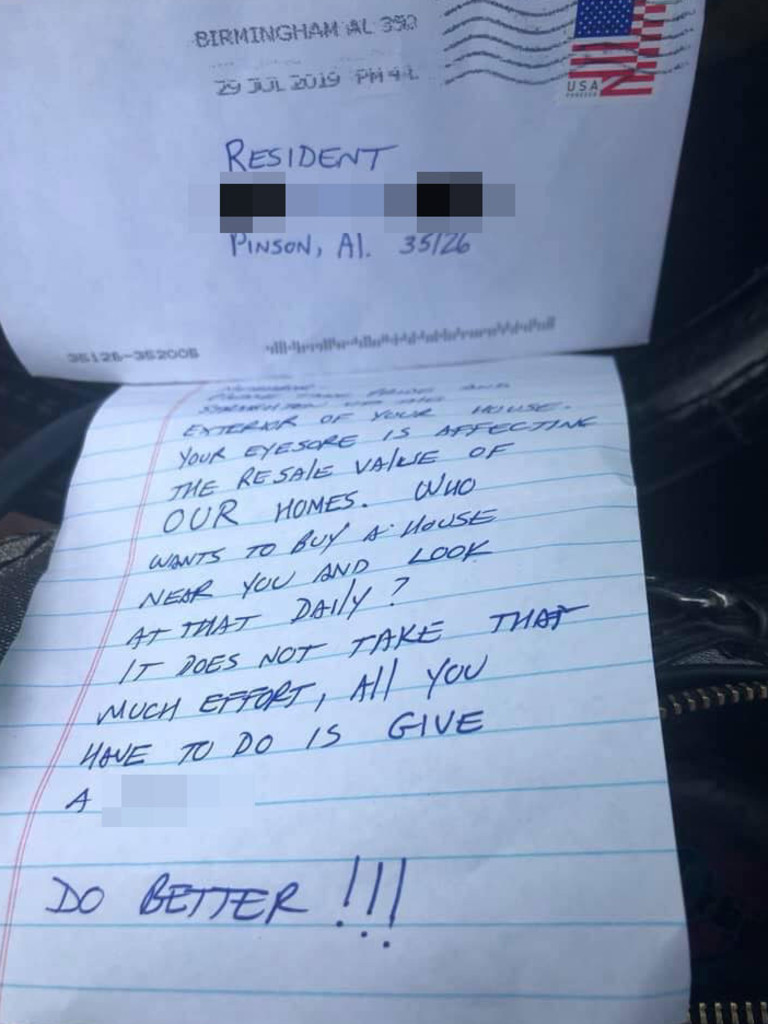 BIRMINGHAM AL 350
29 JUL 2019 PM 4 L
USA
FOREVER
RESIDENT
PINSON, Al. 35126
35126-352006
NEIGHBOR,
PLEASE TAKE PRIDE AND
STRAIGHTEN UP THE
EXTERIOR OF YOUR HOUSE.
YOUR EYESORE IS AFFECTING
THE RESALE VALUE OF
OUR HOMES. WHO
WANTS TO BUY A HOUSE
NEAR YOU AND LOOK
AT THAT DAILY?
IT DOES NOT TAKE THAT
MUCH EFFORT, All YOU
HAVE TO DO IS GIVE
A
DO BETTER!!!